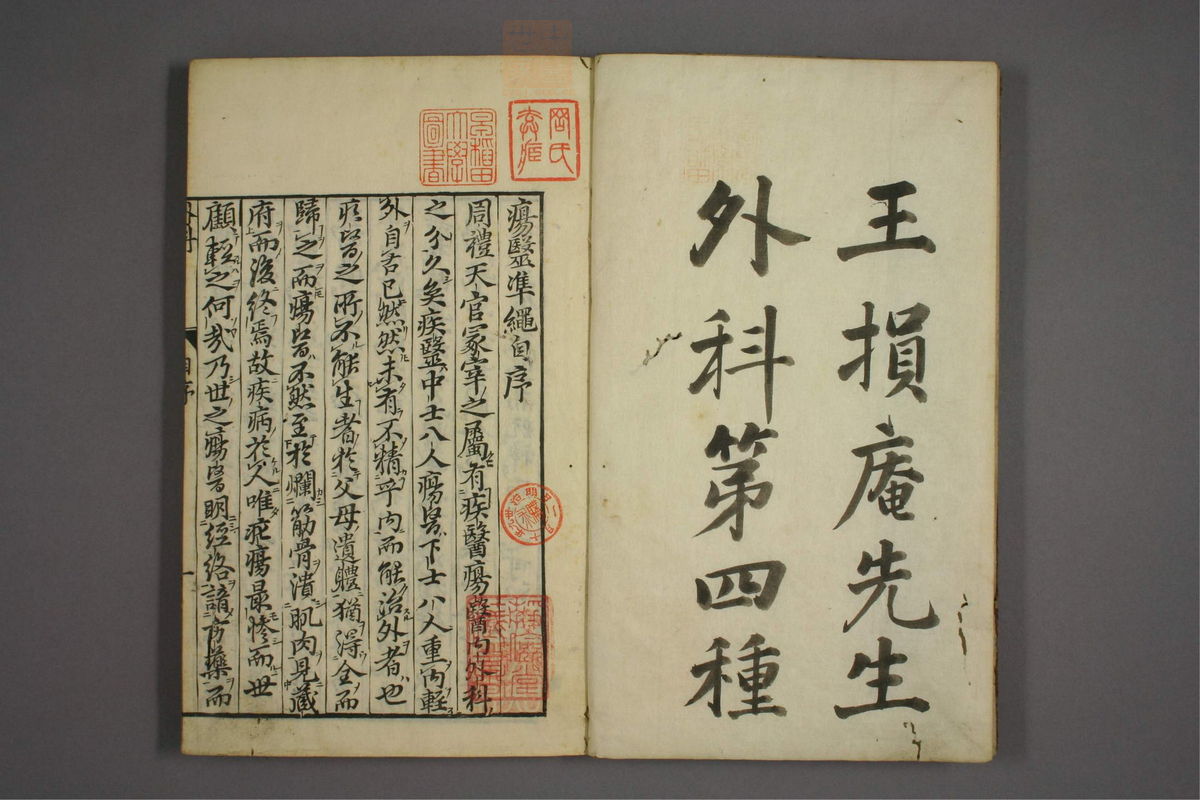 王損庵先生
外科第四種
瘍醫準繩自序
周禮天官冢宰之屬有疾醫瘍醫內外科
之分久矣疾醫中士八人瘍醫下士八人重內輕
外自古已然然未有不精乎內而能治外者也
疾醫之所不能生者於父母遺體猶得全而
歸之而瘍醫不然至於爛筋骨潰肌肉見藏
府而後終焉故疾病於人唯瘍最慘而世
顧輕之何哉乃世之瘍醫明經絡諳方藥而
自序
一
早稲田大學圖書